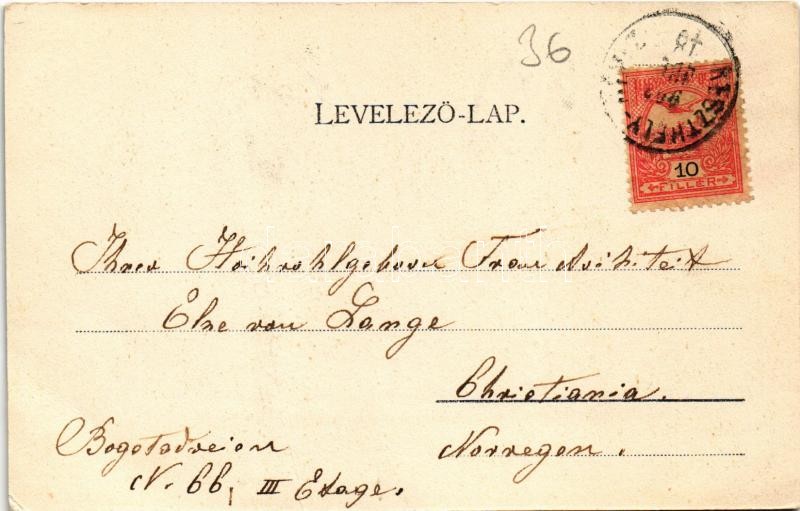 36
LEVELEZŐ-LAP.
KESZTHELY
10
FILLÉR
Ihrer Hochwohlgeboren Frau Architekt
Else von Lange
Christiania.
Bogstadveien
Norwegen.
N. 66, III Etage.